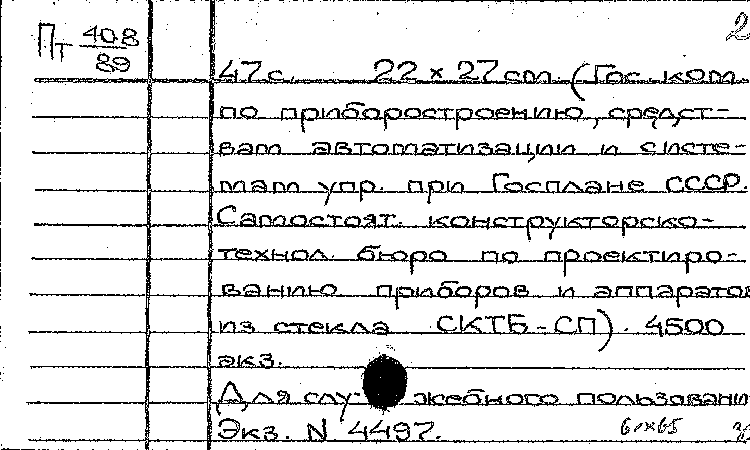 Пт 408
89
2
47 с. 22 × 27 см. (Гос. ком.
по приборостроению, средст-
вам автоматизации и систе-
мам упр. при Госплане СССР.
Самостоят. конструкторско-
технол. бюро по проектиро-
ванию приборов и аппаратов
из стекла СКТБ-СП). 4500
экз.
Для служебного пользовани
Экз. N 4497.